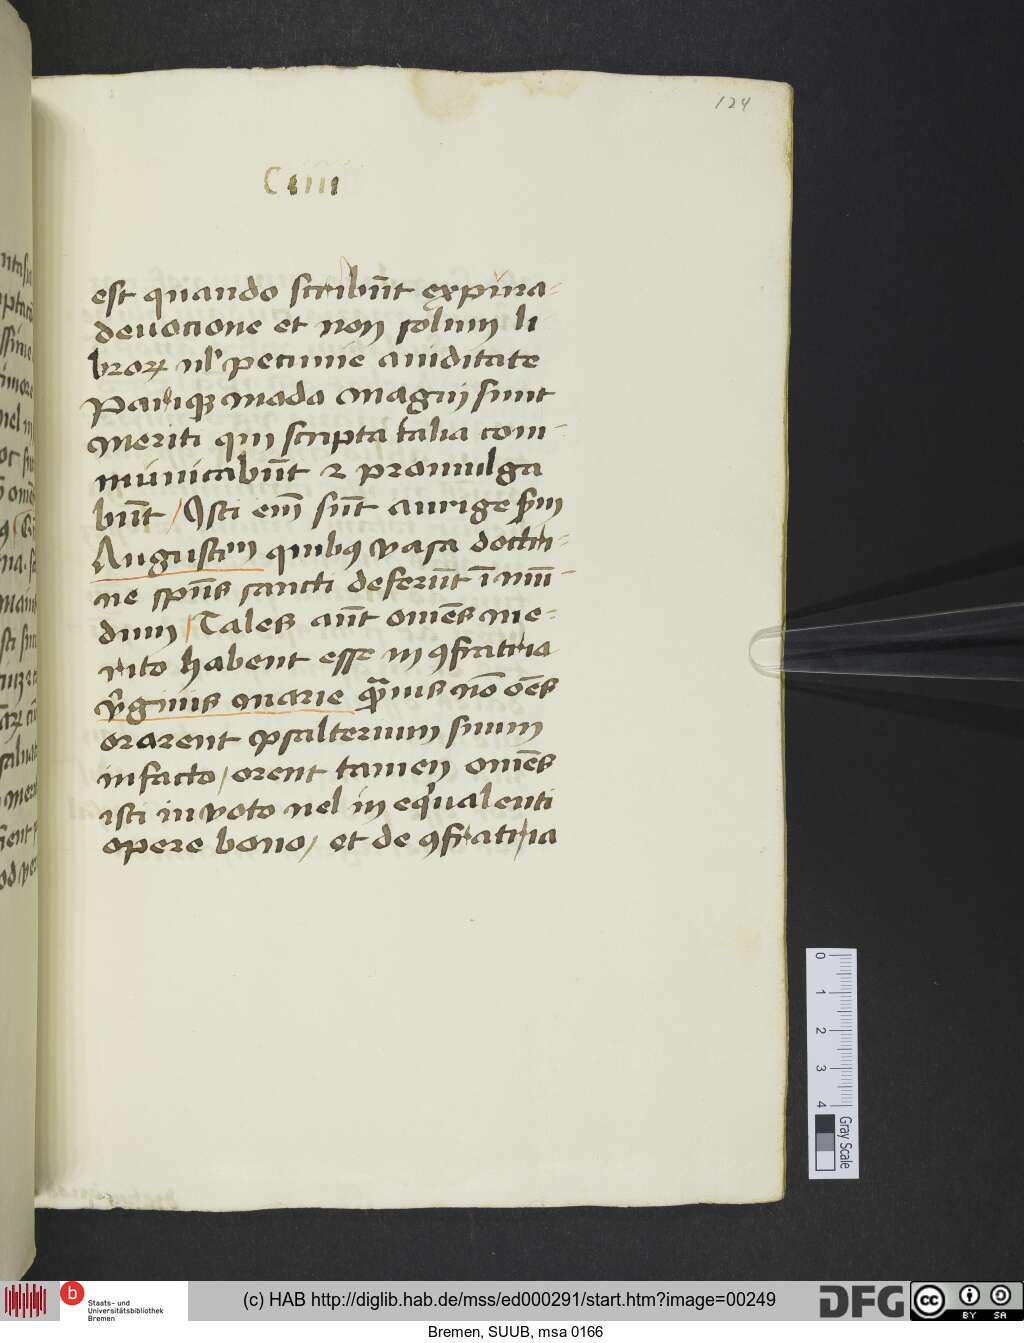 124
Ciiii
est quando scribūt ex pura
deuocione et non solum li
broꝝ ul' pecunie auiditate
Pariqꝫ modo magni sunt
meriti qui scripta talia com-
municabūt ⁊ promulga
būt / Isti em̄ sūt aurige
Augustinū quibꝰ vasa doctri-
ne spūs sancti deferūt ī mū-
dum / Tales aūt om̄es me-
rito habent esse in ꝯfratria
virginis marie quāuis nō oēs
orarent psalterium suum
in facto / orent tamen om̄es
isti in voto uel in equalenti
opere bono / et de ꝯfratria
0
1
2
3
4
Gray Scale
b
Staats- und
Universitätsbibliothek
Bremen
(c) HAB http://diglib.hab.de/mss/ed000291/start.htm?image=00249
DFG
cc
BY SA
Bremen, SUUB, msa 0166